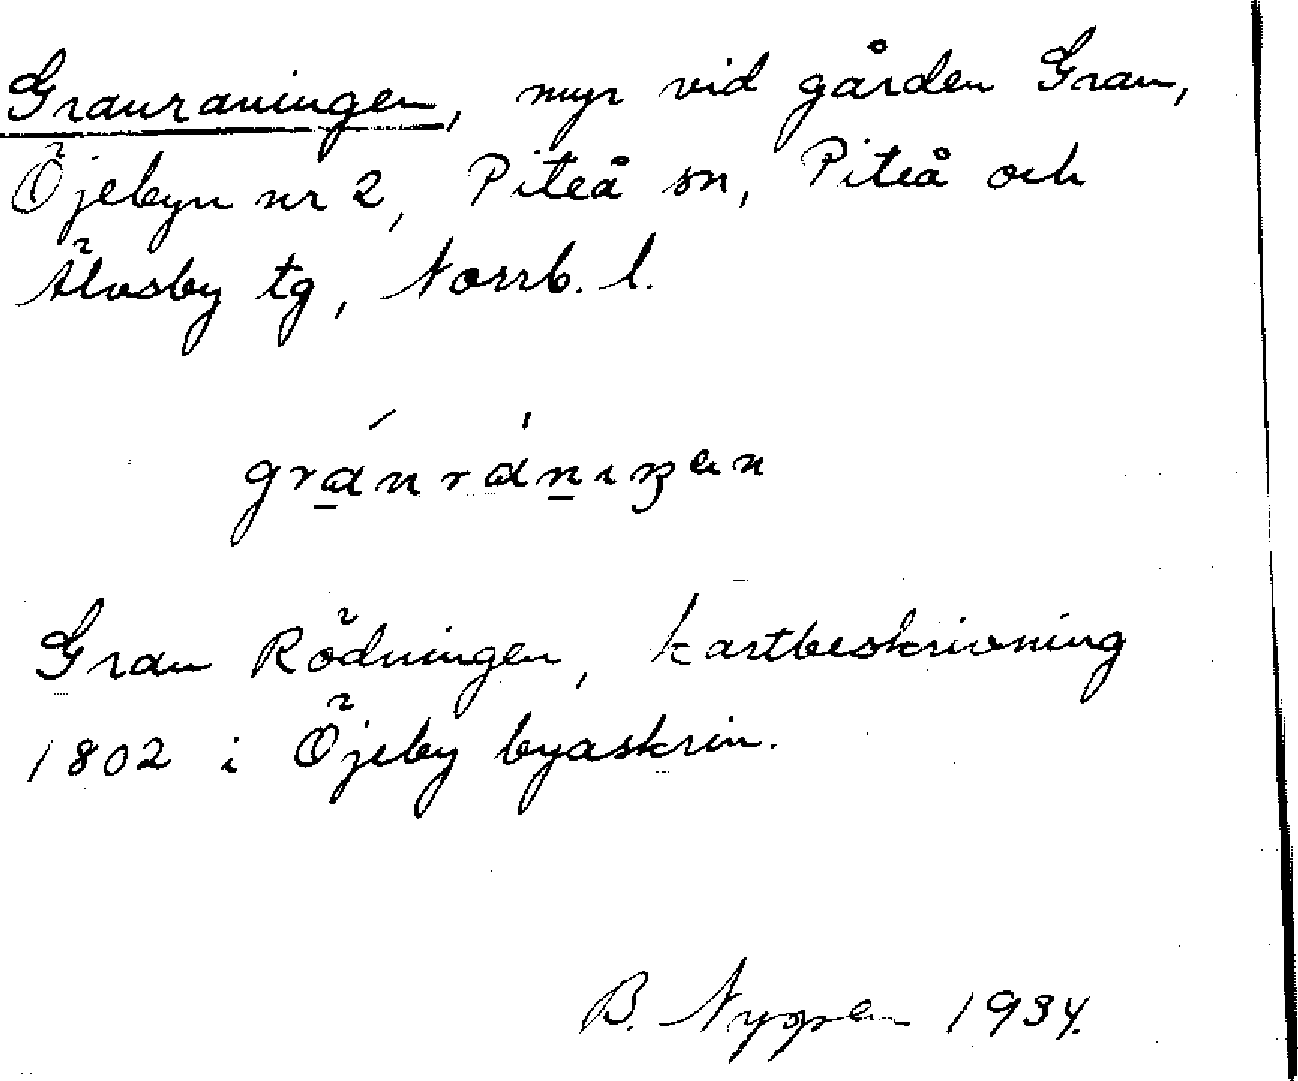 Granraningen, myr vid gården Gran,
Öjebyn nr 2, Piteå sn, Piteå och
Älvsby tg, Norrb. l.
gránrániŋen
Gran Rödningen, kartbeskrivning
1802 i Öjeby byaskrin.
B. Nygren 1934.